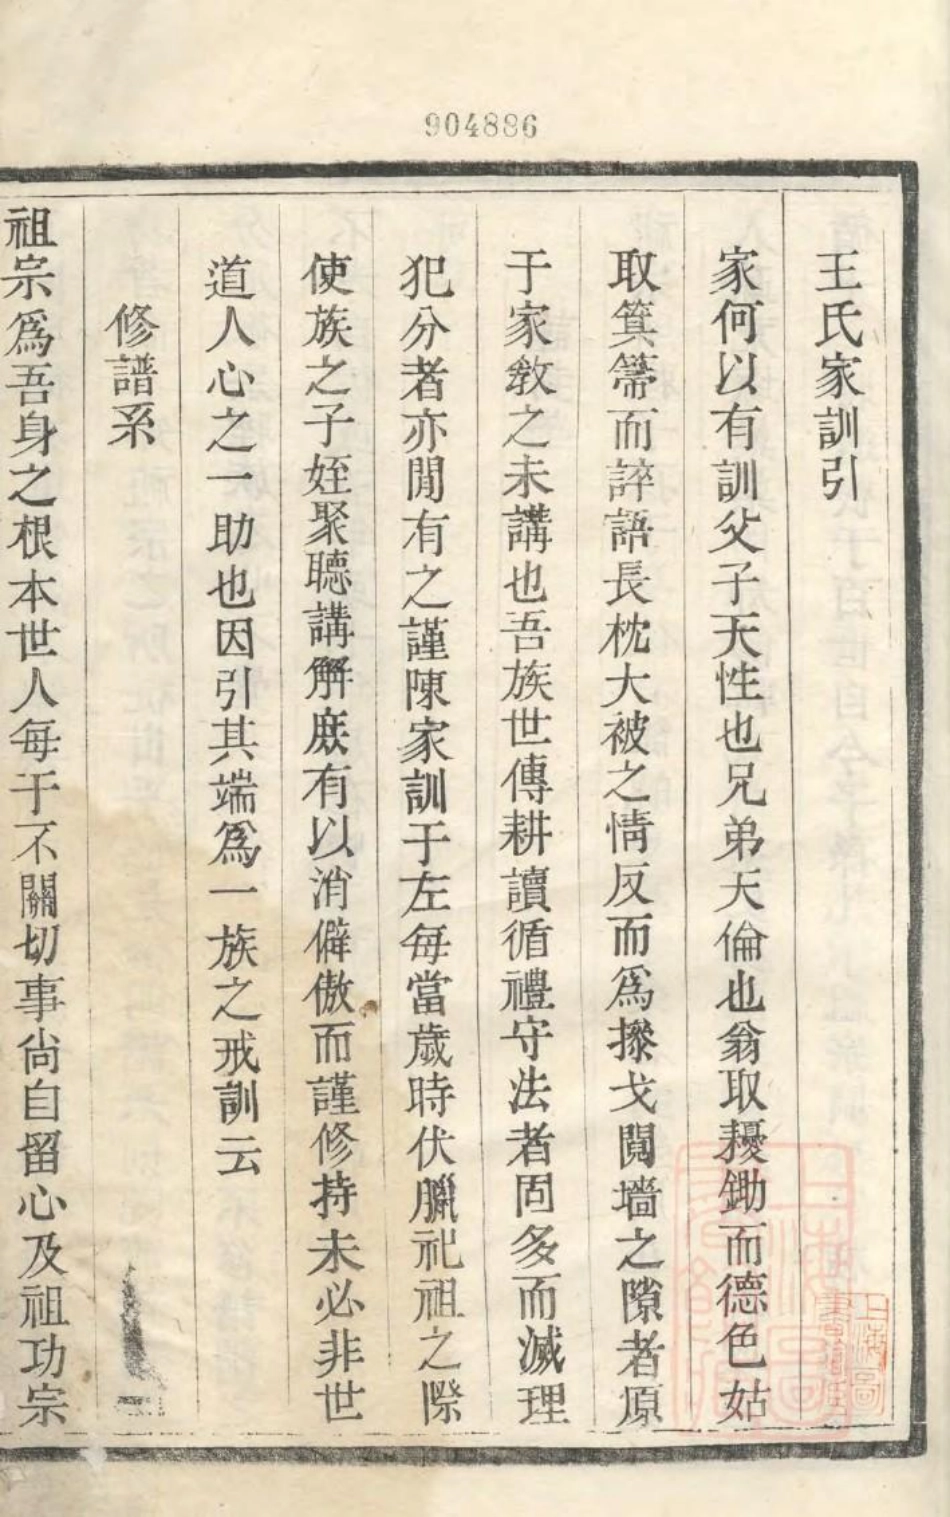 904886
王氏家訓引
家何以有訓父子天性也兄弟天倫也翁取耰鋤而德色姑
取箕箒而誶語長枕大被之情反而爲操戈鬩墻之隙者原
于家敎之未講也吾族世傳耕讀循禮守法者固多而滅理
犯分者亦閒有之謹陳家訓于左每當歲時伏臘祀祖之際
使族之子姪聚聽講解庶有以消僻傲而謹修持未必非世
道人心之一助也因引其端爲一族之戒訓云
修譜系
祖宗爲吾身之根本世人每于不關切事尙自留心及祖功宗